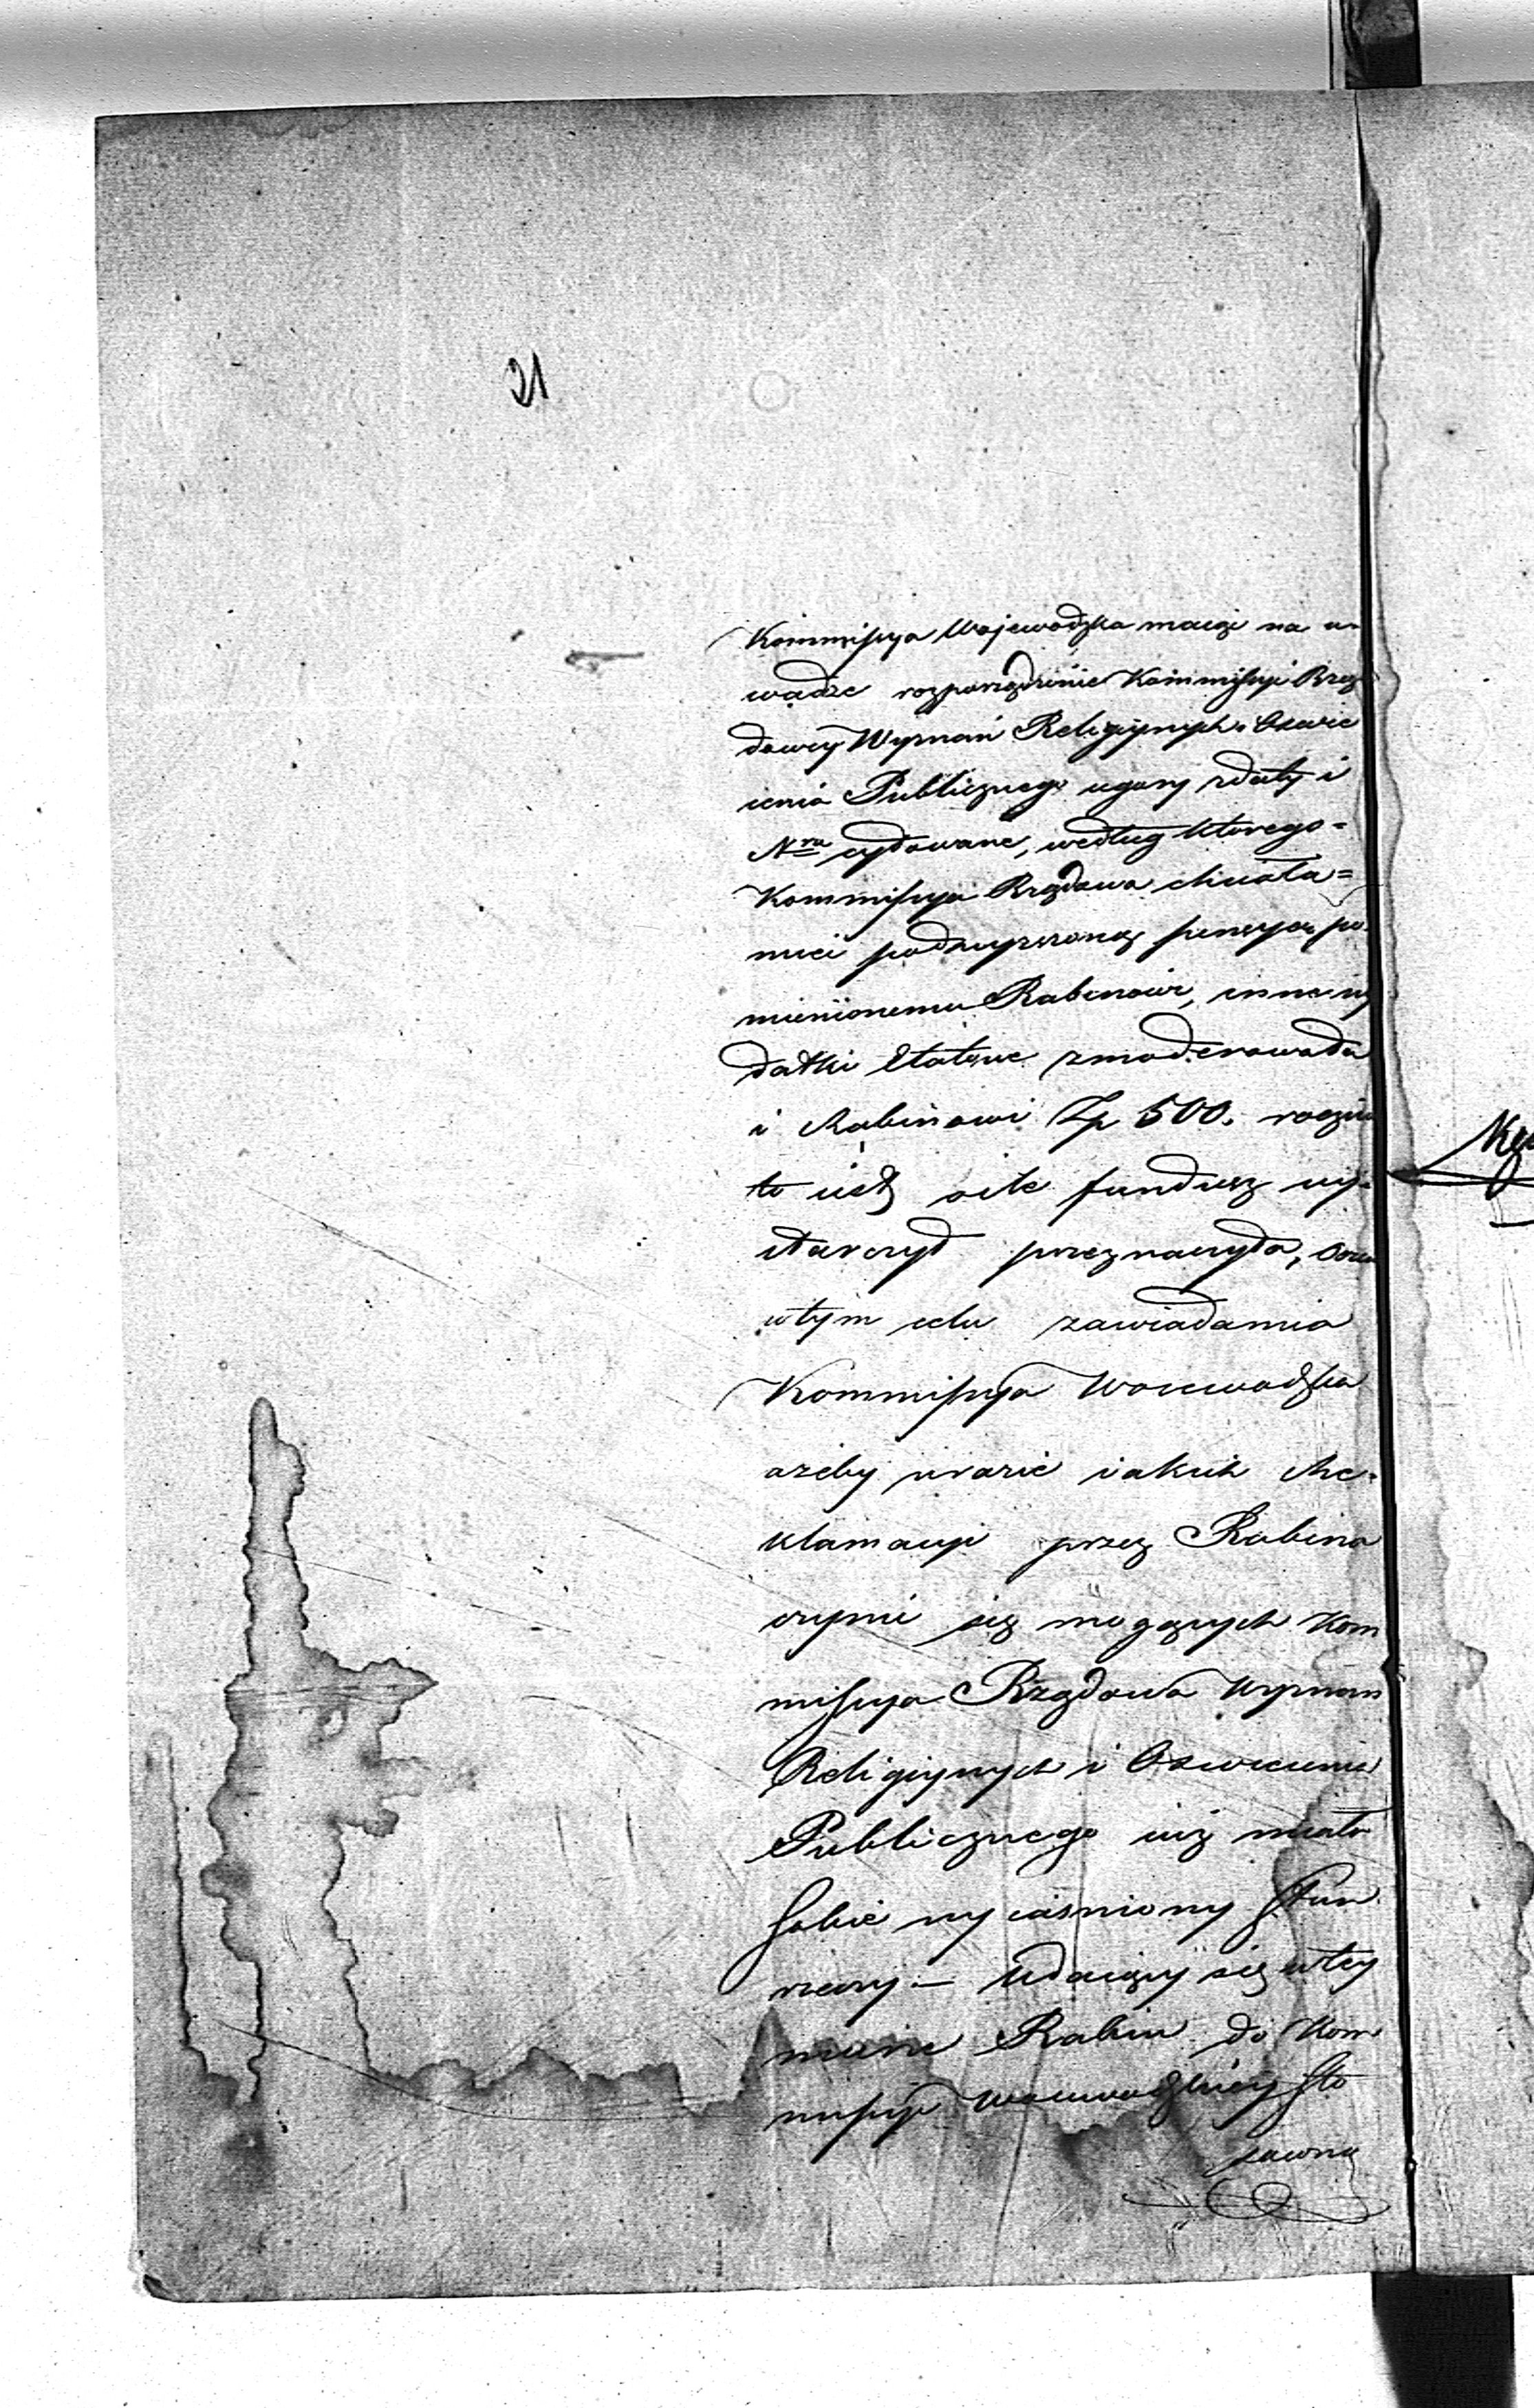 21
Kommissya Wojewodzka maiąc na u-
wadze rozporządzenie Kommissyi Rzą
dowey Wyznań Religiynych i Oświe
cenia Publicznego ugóry z daty i
Nru cytowane, według którego=
Kommissya Rządowa chciała=
mieć podwyższoną pensyą po
mienionemu Rabinowi, inne wy
datki Etatowe zmoderowała
i Rabinowi Zp 500. rocznie
to iest o ile fundusz wy-
starczył przeznaczyła,
w tym celu zawiadamia
Kommissya Woiewodzka
ażeby w razie iakich Re-
klamacyi przez Rabina
czynić się mogących Kom
missya Rządowa Wyznań
Religiynych i Oświecenia
Publicznego iuż miała
sobie wyiaśniony stan
rzeczy – Udaiący się w tey
mierze Rabin do Kom
missyi Woiewodzkiey sto
sowną